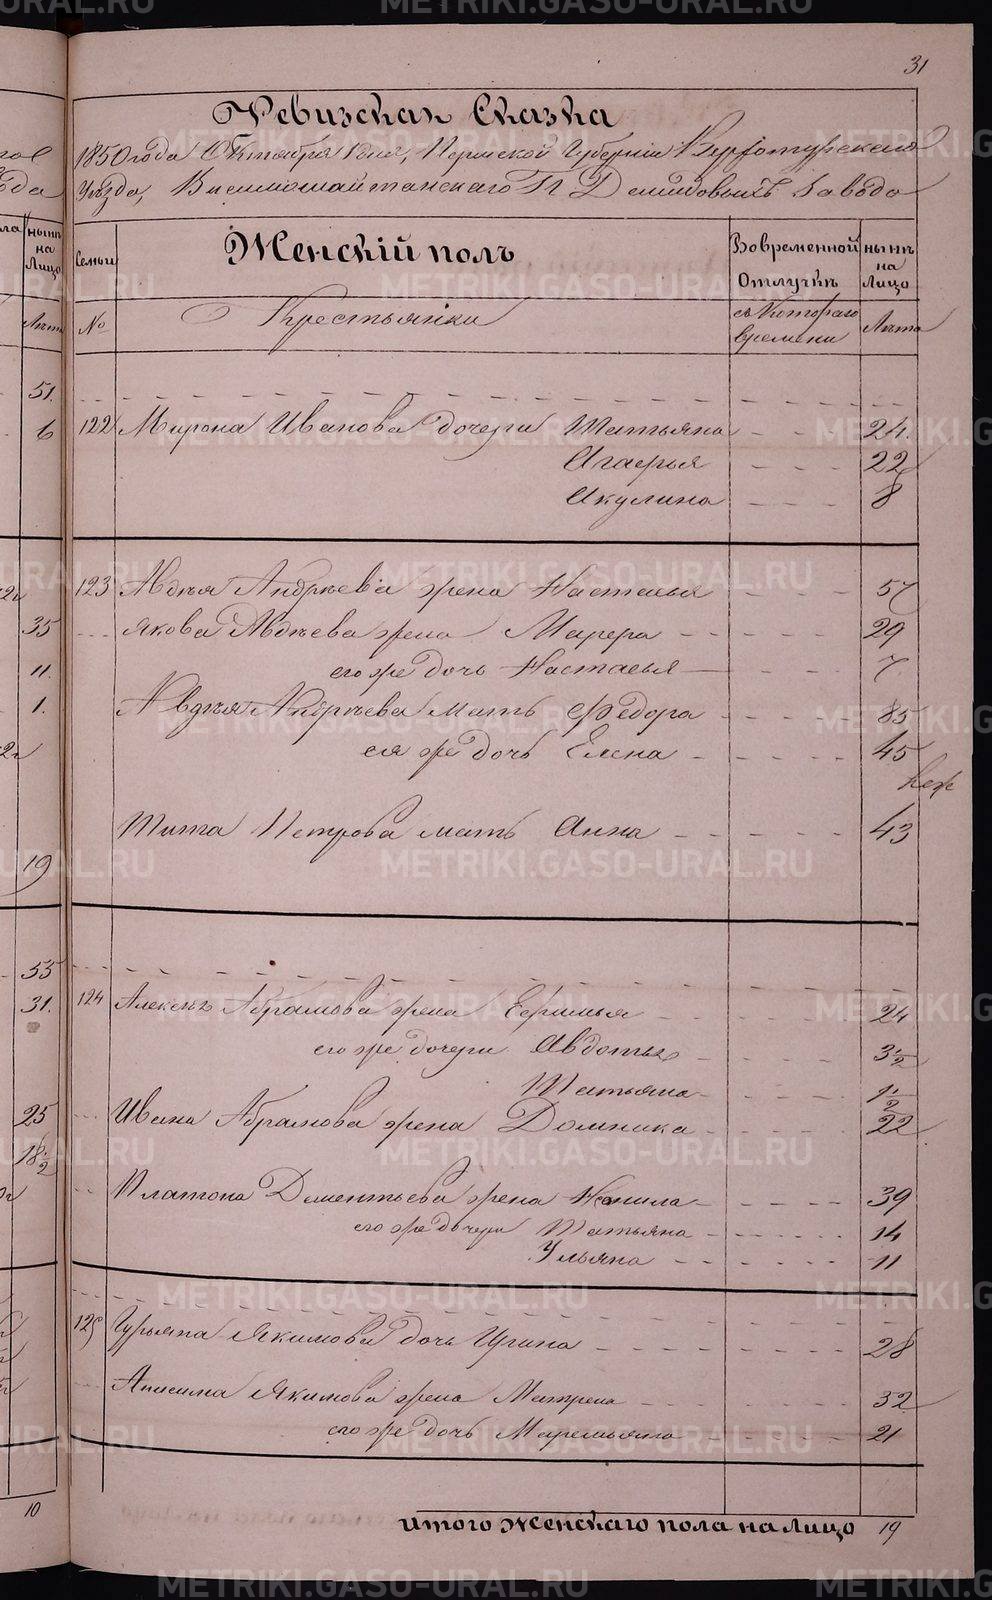 31
Ревизская Сказка
1850 года Октября дня, Пермской Губернии Верхотурского
Уезда, Висимошайтанского П Демидовыхъ Завода
Семьи
Женскій полъ
Вовременной Отлучкѣ
нынѣ на Лицо
№
Крестьянки
съ Котораго времени
Лѣта
122 Мирона Иванова дочери Татьяна 24.
Агафья 22
Акулина 8
123 Авдѣя Андрѣева жена Настасья 57
Якова Авдѣева жена Марфа 29
его же дочь Настасья 7.
Авдѣя Андрѣева мать Федора 85
ея же дочь Елена 45
Тита Петрова мать Анна 43
124 Алексѣя Абрамова жена Ефимья 24
его же дочери Авдотья 3 1/2
Татьяна 1/2
Ивана Абрамова жена Домника 22
Платона Дементьева жена Ненила 39
его же дочери Татьяна 14
Ульяна 11
125 Гурьяна Якимова дочь Ирина 28
Анисима Якимова жена Матрена 32
его же дочь Маремьяна 21
итого Женскаго пола на Лицо 19
нынѣ на Лицо
Лѣта
51.
6
35
11.
1.
19
55
31.
25
18 1/2
10
METRIKI.GASO-URAL.RU